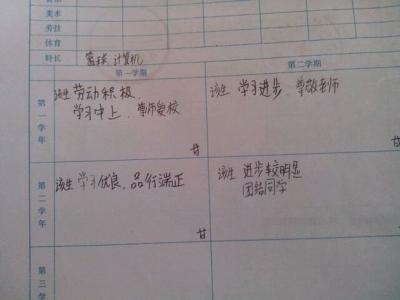 美术
劳技
体育
特长 篮球 计算机
第一学期 第二学期
第一学年
该生 劳动积极
学习中上、尊师爱校
甘
该生 学习进步、尊敬老师
甘
第二学年
该生 学习优良、品行端正
甘
该生 进步较明显
团结同学
第三学